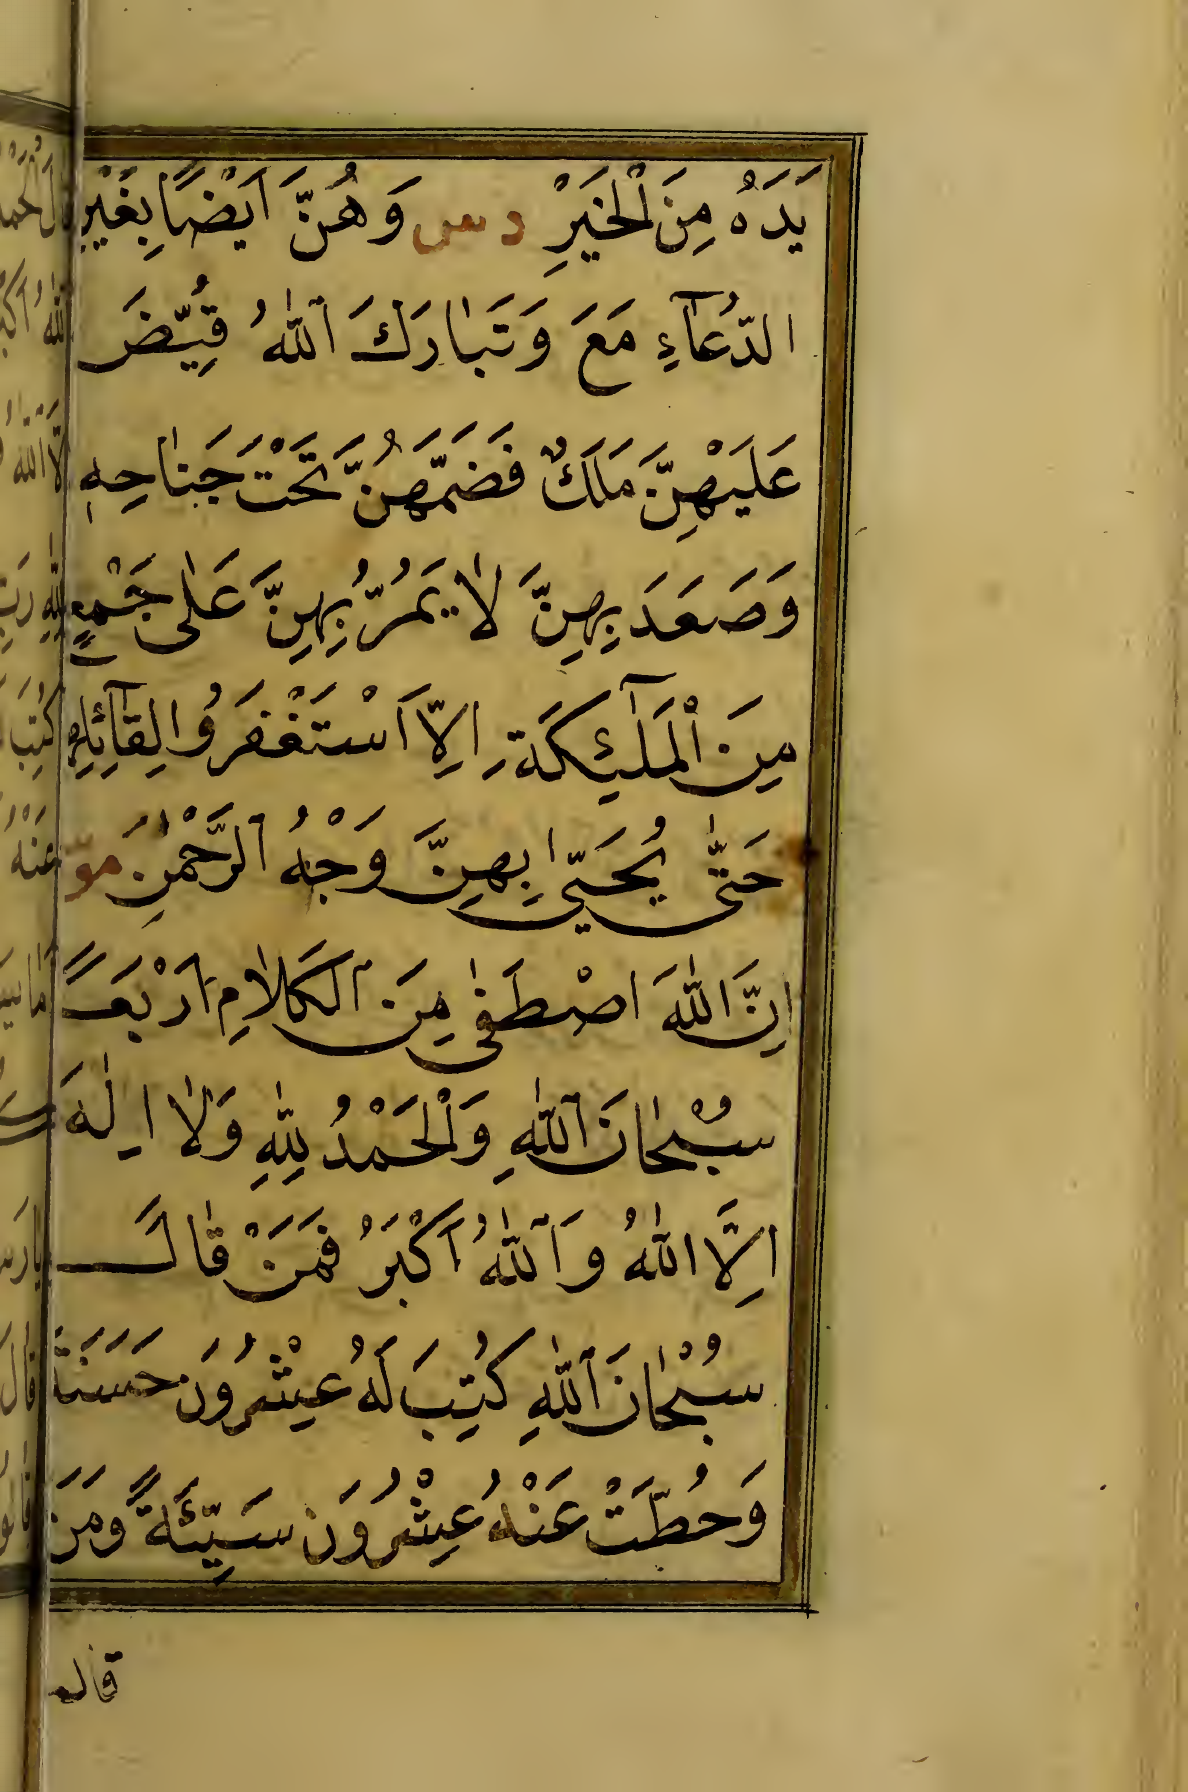 يَدَهُ مِنَ الْخَيْرِ د س وَهُنَّ اَيْضًا بِغَيْرِ
الدُّعَآءِ مَعَ وَتَبَارَكَ اللّٰهُ قُيِّضَ
عَلَيْهِنَّ مَلَكٌ فَضَمَّهُنَّ تَحْتَ جَنَاحِهٖ
وَصَعَدَ بِهِنَّ لَا يَمُرُّ بِهِنَّ عَلٰى جَمْعٍ
مِنَ الْمَلٰٓئِكَةِ اِلَّا اسْتَغْفَرُوا لِقَآئِلِهِ
حَتّٰى يُحَيّٰى بِهِنَّ وَجْهُ الرَّحْمٰنِ مو
اِنَّ اللّٰهَ اصْطَفٰى مِنَ الْكَلَامِ اَرْبَعًا
سُبْحَانَ اللّٰهِ وَالْحَمْدُ لِلّٰهِ وَلَا اِلٰهَ
اِلَّا اللّٰهُ وَاللّٰهُ اَكْبَرُ فَمَنْ قَالَ
سُبْحَانَ اللّٰهِ كُتِبَ لَهُ عِشْرُونَ حَسَنَةً
وَحُطَّتْ عَنْهُ عِشْرُونَ سَيِّئَةً وَمَنْ
قال